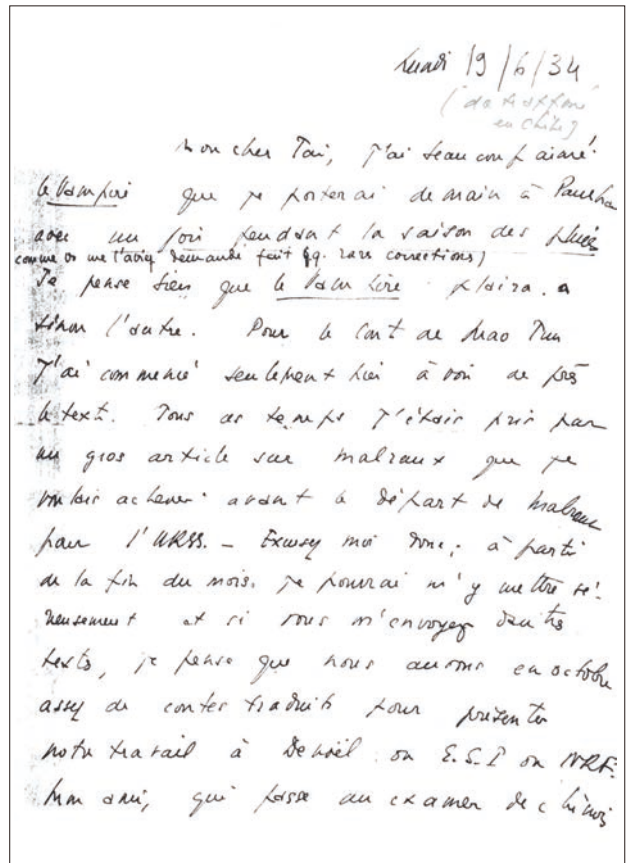 Lundi 19/6/34
(date
en Chine)
Mon cher Tai, J'ai beaucoup aimé
le Vampire que je porterai demain à
avec un soir pendant la saison des pluies
comme vs me l'aviez demandé fait qq. rares corrections)
Je pense bien que le Vampire plaira. a
sinon l'autre. Pour le Cont de Mao Tun
J'ai commencé seulement hier à voir de près
le text. Tous ces temps j'étais pris par
un gros article sur Malraux que je
voulais achever avant le départ de Malraux
pour l'URSS. – Excusez moi donc ; à partir
de la fin du mois. je pourrai m'y mettre sé-
rieusement et si vous m'envoyez d'autres
texts, je pense que nous aurons en octobre
assez de contes traduits pour présenter
notre travail à Denoël ou E.S.I ou NRF.
Mon ami, qui passe un examen de chinois